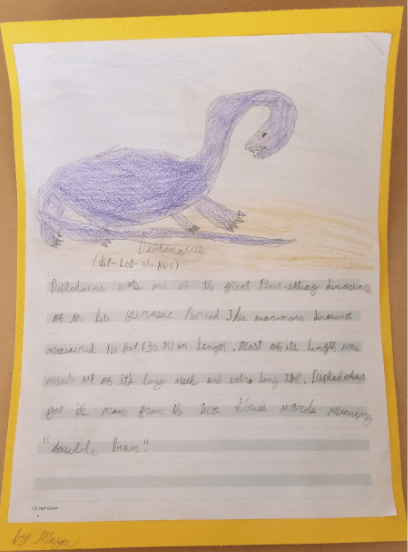 Diplodocus
(dip-LOD-oh-kus)
Diplodocus was one of the great Plant-eating dinosaurs
of the late Jurassic Period. The enormous dinosaur
measured 100 feet (30 M) in length. Most of its length was
made up of its large neck and extra long tail. Diplodocus
got its name from the two Greek words meaning
"double beam".
by